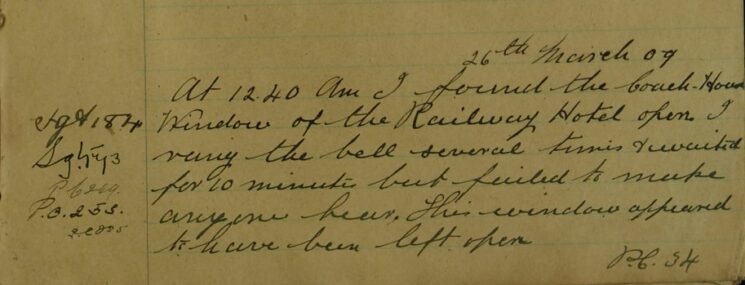 26th March 09
At 12.40 Am I found the Coach-House
Sgt 184
Window of the Railway Hotel open I
rang the bell several times & waited
for 10 minutes but failed to make
P.C. 253.
anyone hear. This window appeared
to have been left open
P.C. 34